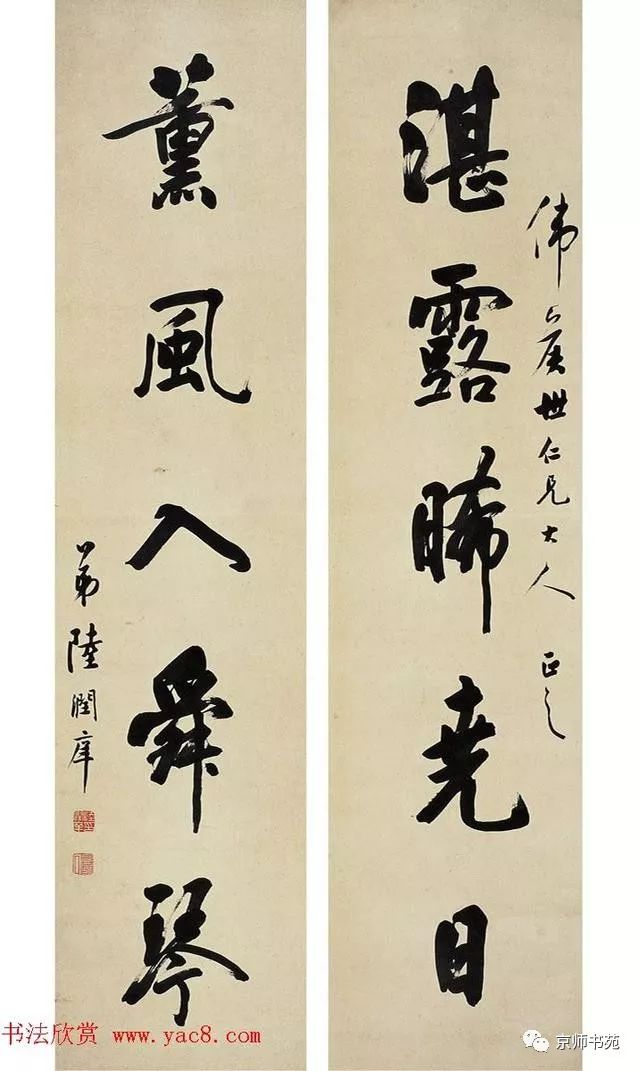 偉世仁兄大人 正之
湛露晞堯日
薰風入舜琴
弟陸潤庠
书法欣赏 www.yac8.com
京师书苑